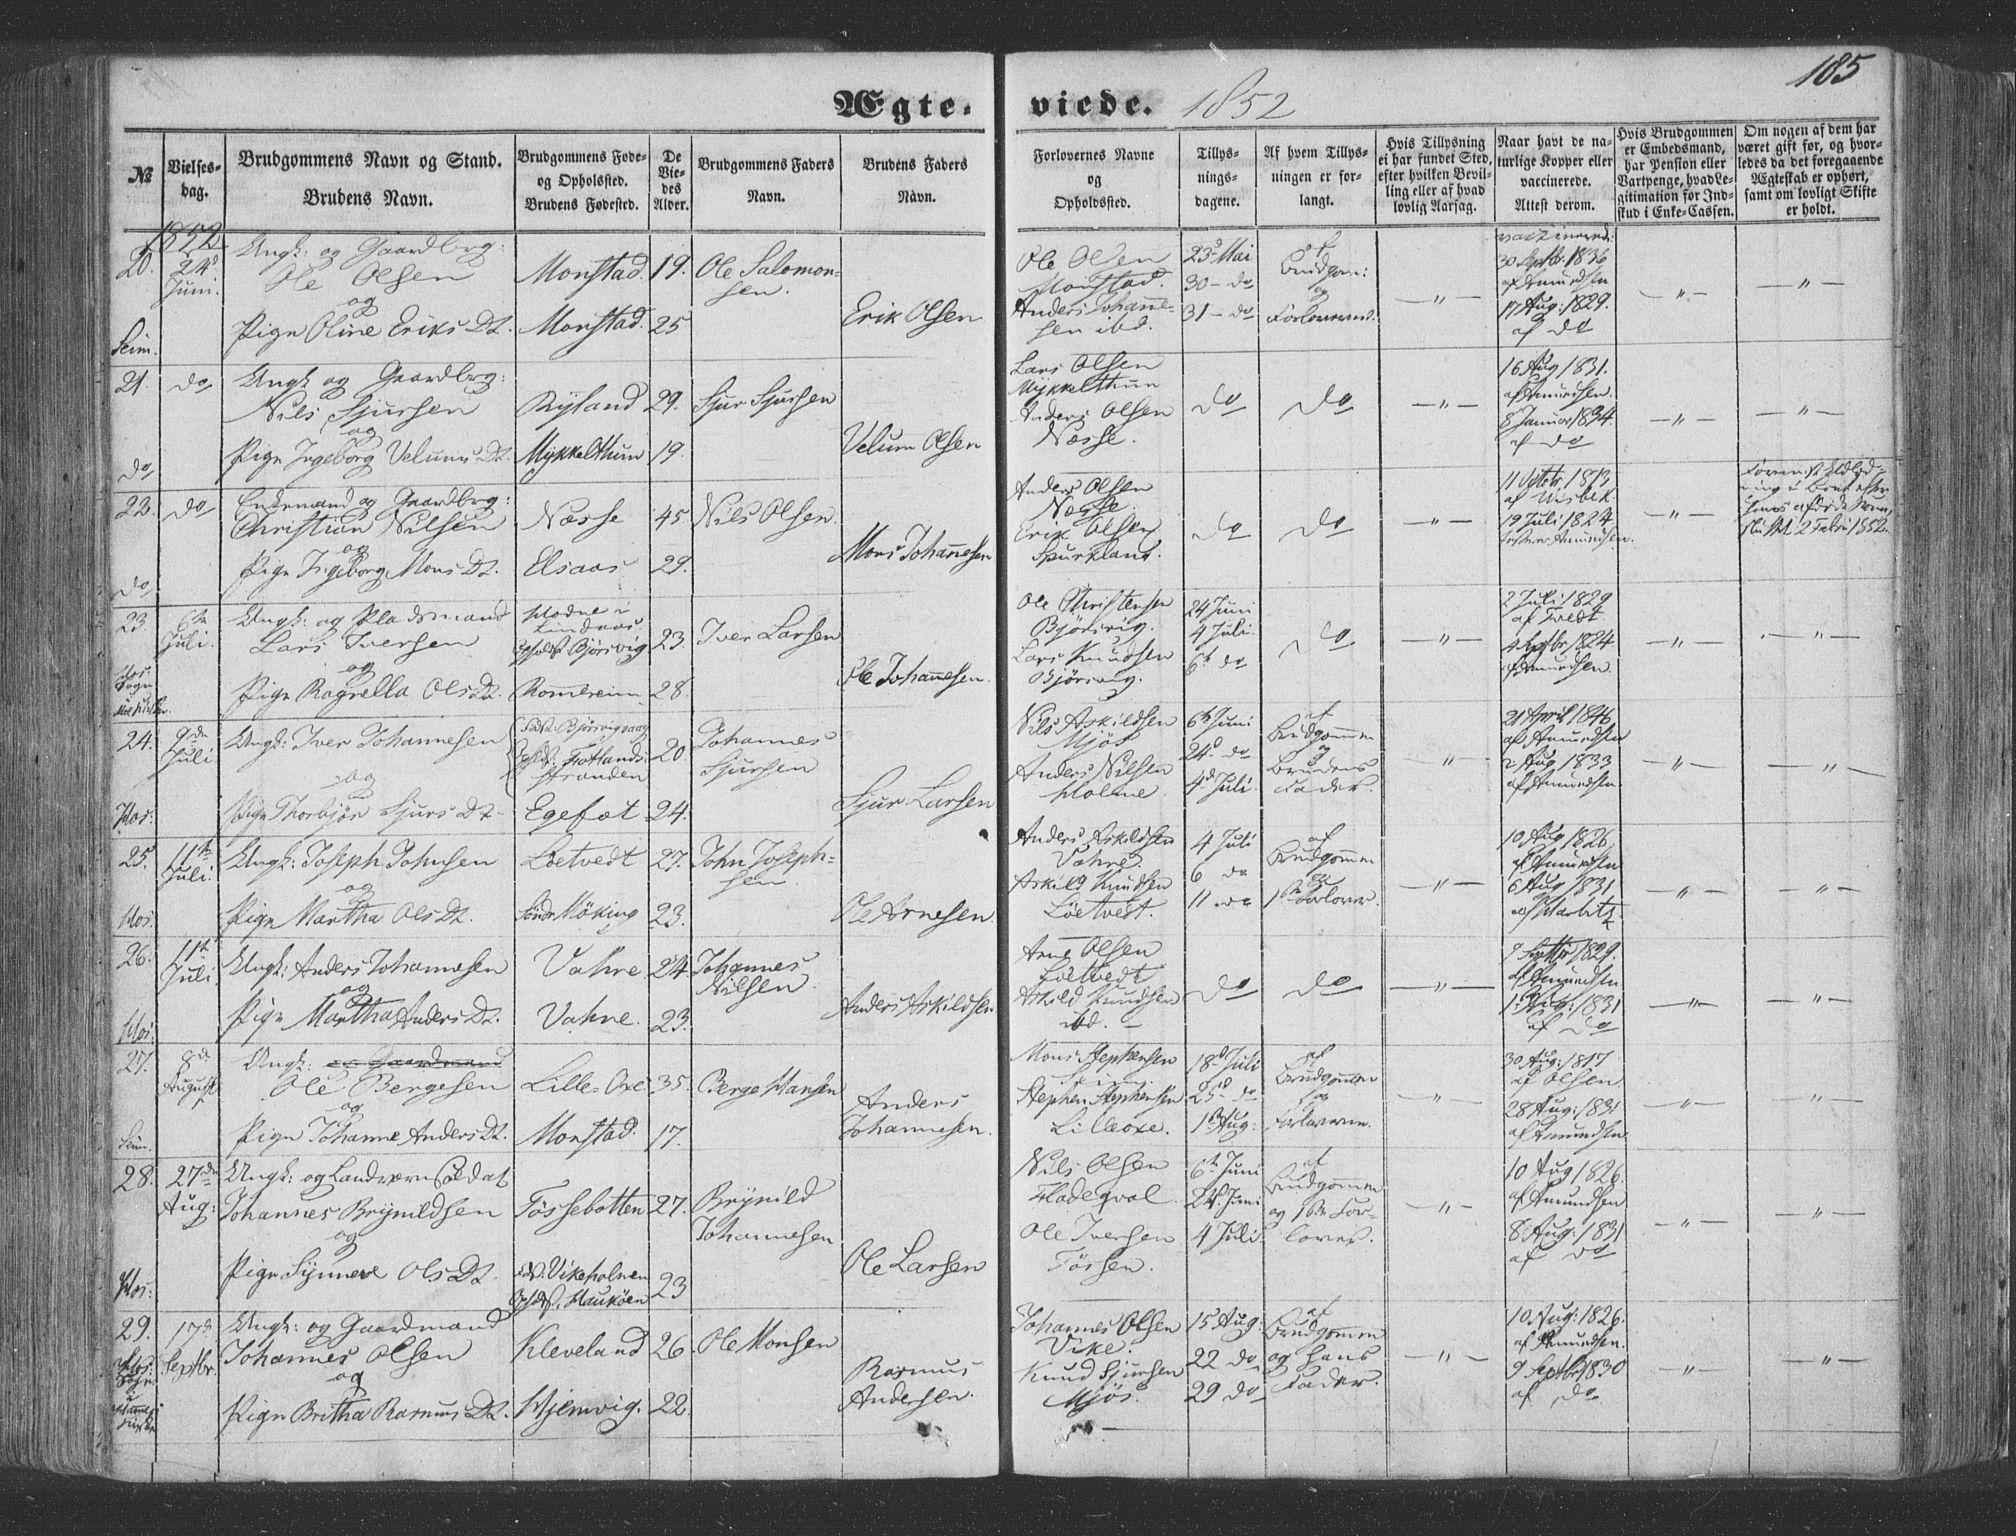 185
Ægte- viede. 1852
№
Vielses-
dag.
Brudgommens Navn og Stand.
Brudens Navn.
Brudgommens Føde-
og Opholssted.
Brudens Fødested.
De
Vie-
des
Alder.
Brudgommens Faders
Navn.
Brudens Faders
Navn.
Forlovernes Navne
og
Opholdssted.
Tillys-
nings-
dagene.
Af hvem Tillys-
ningen er for-
langt.
Hvis Tillysning
ei har fundet Sted,
efter hvilken Bevil-
ling eller af hvad
lovlig Aarsag.
Naar havt de na-
turlige Kopper eller
vaccinerede.
Attest derom.
Hvis Brudgommen
er Embedsmand,
har Pension eller
Vartpenge, hvad Le-
gitimation for Ind-
skud i Enke-Cassen.
Om nogen af dem har
været gift før, og hvor-
ledes da det foregaaende
Ægteskab er ophørt,
samt om lovligt Skifte
er holdt.
1852
20. 24d Juni. Seim.
Ungk: og Gaardbrg:
Ole Olsen
og
Pige Oline Eriks Dt.
Monstad. 19. Ole Salomon-
sen.
Monstad. 25 Erik Olsen
Ole Olsen
Monstad.
Anders Johanne-
sen ibd.
23d Mai
30 - do
31 - do
af
Brudgom:
og
Forloverne.
- " -
vaccinerede:
30 Septbr. 1836
af Amundsen
17 Aug: 1829.
af do
- " - - " -
21. do do
Ungk og Gaardbrg:
Nils Sjursen
og
Pige Ingeborg Velums Dt.
Ryland 29. Sjur Sjursen
Mykkelthun 19. Velum Olsen
Lars Olsen
Mykkelthun
Anders Olsen
Næsse.
do do - " -
16 Aug 1831.
af Amundsen.
8 Januar 1834.
af do
- " - - " -
22. do do
Enkemand og Gaardbrg:
Christian Nilsen
og
Pige Ingeborg Mons Dt.
Næsse 45. Nils Olsen.
Elsaas 29. Mons Johannesen
Anders Olsen
Næsse.
Erik Olsen
Spurkland.
do do - " -
11 Octbr. 1813
af Wisbek.
19 Juli 1824
Amundsen.
- " -
2 Febr: 1852.
23. 6te Juli.
Hos: Sogn
Ungk: og Pladsmand
Lars Iversen
og
Pige Ragnella Ols Dt.
Modne i
Lindaas
Opholdst. Bjørsvig 23. Iver Larsen
Rommereim 28. Ole Johannesen.
Ole Christensen
Bjørsvig.
Lars Knudsen
Bjørsvig.
24 Juni
4 Juli.
6te do
do - " -
2 Juli 1829
af Tvedt
4 Septbr. 1824
af Amundsen.
- " - - " -
24. 9de Juli Hos:
Ungk: Iver Johannesen
og
Pige Thorbjør Sjurs Dt.
Fødst. Bjørsvigvaag
Opholdst. Fotlands-
stranden
20. Johannes
Sjursen
Egefæt 24. Sjur Larsen
Nils Askildsen
Mjøs
Anders Nilsen
Holme.
6te Juni
24d do
4d Juli.
af
Brudgommen
og
Brudens
Fader.
- " -
21 April 1846
af Amundsen
2 Aug 1833
af Amundsen
- " - - " -
25. 11te Juli. Hos:
Ungk: Joseph Johnsen
og
Pige Martha Ols Dt.
Løetvedt 27. John Joseph-
sen.
Søndr Høking 23. Ole Arnesen.
Anders Askildsen
Vahre.
Askild Knudsen
Løetvedt.
4 Juli
6 do
11 do
af
Brudgommen
og
1ste Forlover.
- " -
10 Aug 1826
af Amundsen
6 Aug 1831
af Harbitz
- " - - " -
26. 11te Juli Hos:
Ungk: Anders Johannesen
og
Pige Martha Anders Dt.
Vahre 24. Johannes
Nilsen.
Vahre. 23. Anders Askildsen
Arne Olsen
Løetvedt
Askild Knudsen
ibd. -
do do - " -
9 Septbr. 1829.
af Amundsen
1 Aug: 1831
af do
- " - - " -
27. 8d August Seim.
Ungk: og Gaardmand
Ole Bergesen
og
Pige Johanne Anders Dt.
Lille-Oxe 35. Berge Hansen
Monstad. 17. Anders
Johannesen.
Mons Stephensen
Seim.
Stephen Stephensen
Lilleoxe.
18d Juli
25d do
1ste Aug:
af
Brudgommen
og
Forloverne.
- " -
30 Aug: 1817
af Olsen.
28 Aug: 1831
af Amundsen
- " - - " -
28. 27de Aug: Hos:
Ungk: og Landværn Soldat
Johannes Brynildsen
og
Pige Synneve Ols Dt.
Føssebotten 27. Brynild
Johannesen
Fødst. Vikeholmen
Opholdst. Haukøen 23 Ole Larsen
Nils Olsen
Fladeqval.
Ole Iversen
Fossen.
6te Juni
24d Juni
4 Juli
af
Brudgommen
og 1ste For-
lover.
- " -
10 Aug 1826.
af Amundsen
8 Aug: 1831
af do
- " - - " -
29. 17d Septbr.
Hos: Sogn
Ungk: og Gaardmand
Johannes Olsen
og
Pige Britha Rasmus Dt.
Kleveland 26 Ole Monsen
Hjemvig. 22. Rasmus
Andersen.
Johannes Olsen
Vike.
Knud Sjursen
Mjøs.
15d Aug:
22 do
29 do
af
Brudgommen
og hans
Fader.
- " -
10 Aug: 1826.
af Amundsen.
9 Septbr 1830
af do.
- " - - " -